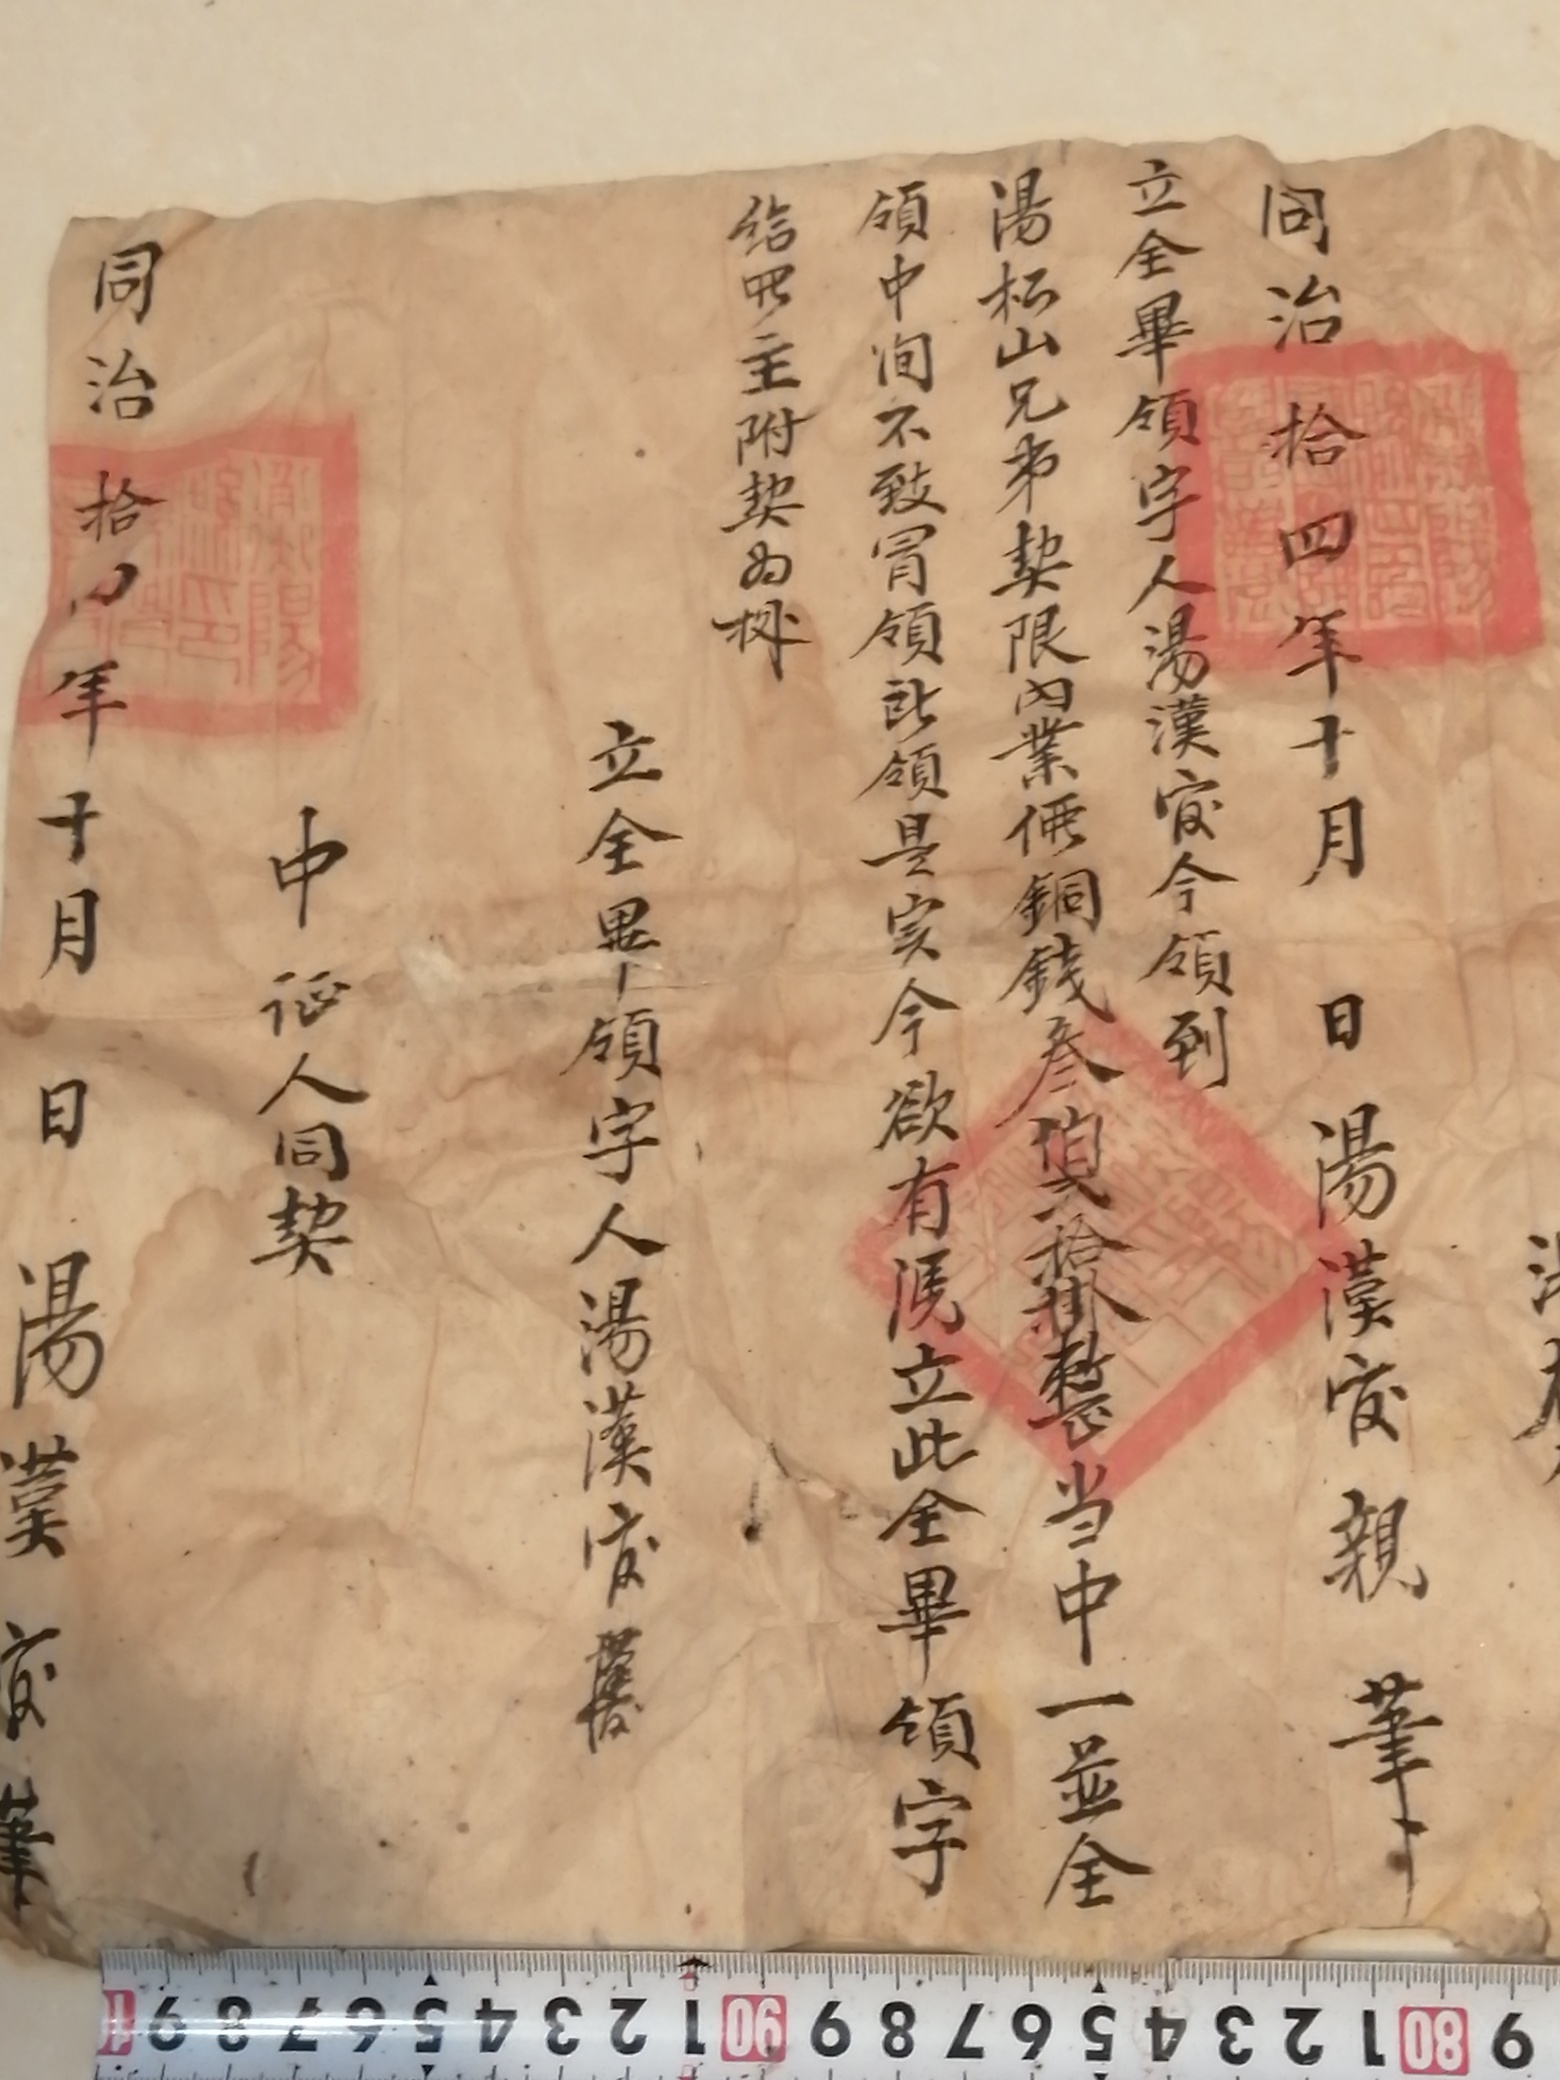 同治拾四年十月 日湯漢官親筆
立全畢領字人湯漢官今領到
湯松山兄弟契限內業価銅錢叁伯貳拾掛整当中一並全
領中间不致冐領所領是实今欲有凴立此全畢領字
给買主附契为挷
立全畢領字人湯漢官
中证人同契
同治拾四年十月 日湯漢官筆
9 8 7 6 5 4 3 2 1 90 9 8 7 6 5 4 3 2 1 80 9